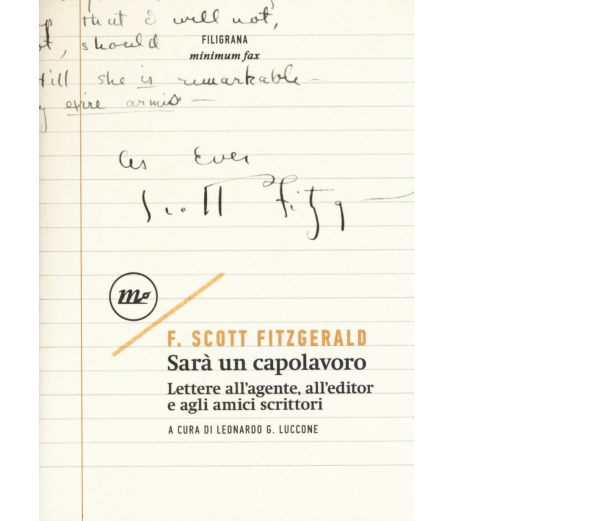 that I will not,
, should
FILIGRANA
minimum fax
till she is remarkable —
—
As Ever
Scott Fitzg
mf
F. SCOTT FITZGERALD
Sarà un capolavoro
Lettere all'agente, all'editor
e agli amici scrittori
A CURA DI LEONARDO G. LUCCONE